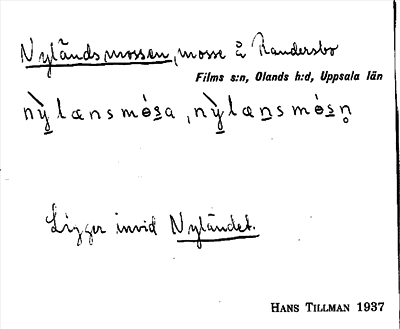 Nyländsmossen, mosse å Randersbo
Films s:n, Olands h:d, Uppsala län
nỳ̲lænsmó̵s̲a, nỳ̲læn̲smó̵s̲n̥
Ligger invid Nyländet.
HANS TILLMAN 1937